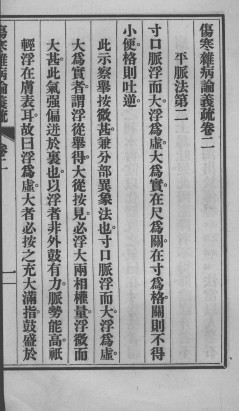 傷寒雜病論義疏卷二
平脈法第二
寸口脈浮而大。浮為虛。大為實。在尺為關。在寸為格。關則不得
小便。格則吐逆。
此示察舉按微甚兼分部異象法也。寸口脈浮而大。浮為虛。
大為實者。謂浮從舉得。大從按見。必浮大兩相權量。浮微而
大甚。此氣强偏迸於裏也。以浮者非外鼓有力。脈勢能高。祇
輕浮在膚表耳。故曰浮為虛。大者必按之充大滿指。鼓盛於
傷寒雜病論義疏 卷二 一